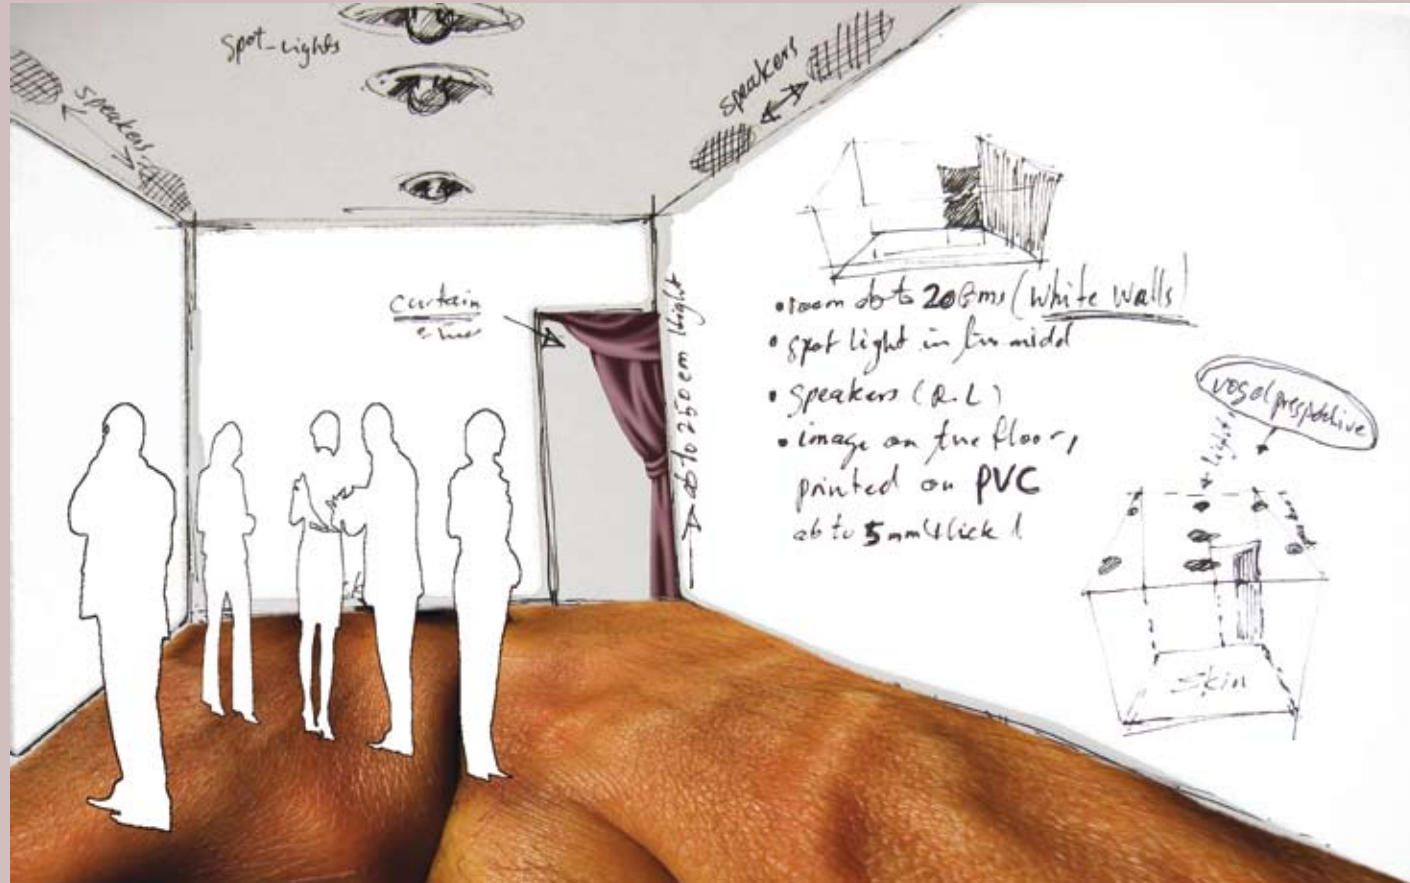 spot-lights
speakers
speakers
curtain
ab to 250 cm hight
• room ab to 20 (white walls)
• spot light in midd
• speakers (R.L)
• image on the floor,
printed on PVC
ab to 5 mm thick !
vogel prespective
light
Skin